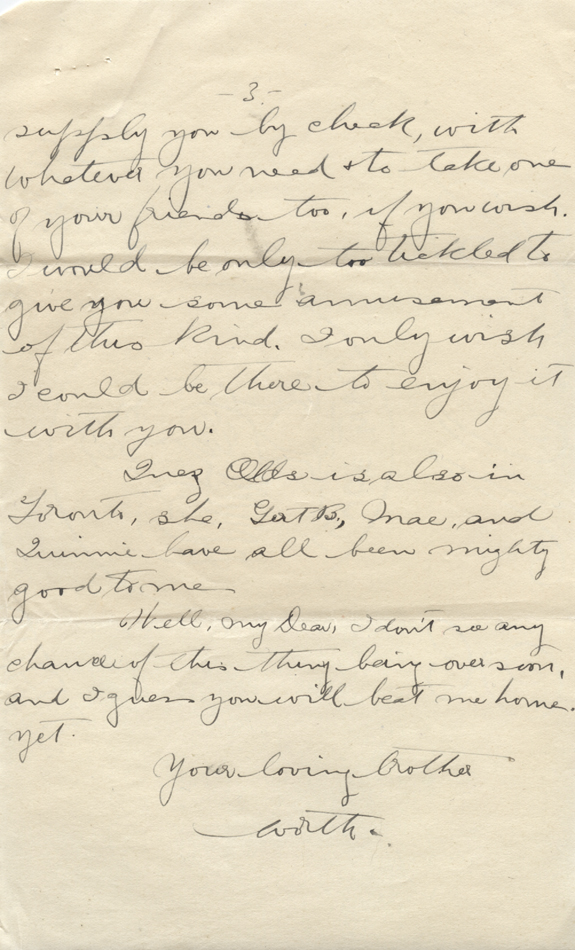 -3-
supply you by check, with
whatever you need to take one
of your friends too, if you wish.
I would be only too tickled to
give you some amusement
of this kind. I only wish
I could be there to enjoy it
with you.
Inez is also in
Toronto, she, Gert B., Mae, and
Quinnie have all been mighty
good to me
Well, my Dear, I don't see any
chance of this thing being over soon,
and I guess you will beat me home.
yet.
Your loving brother
Worth.